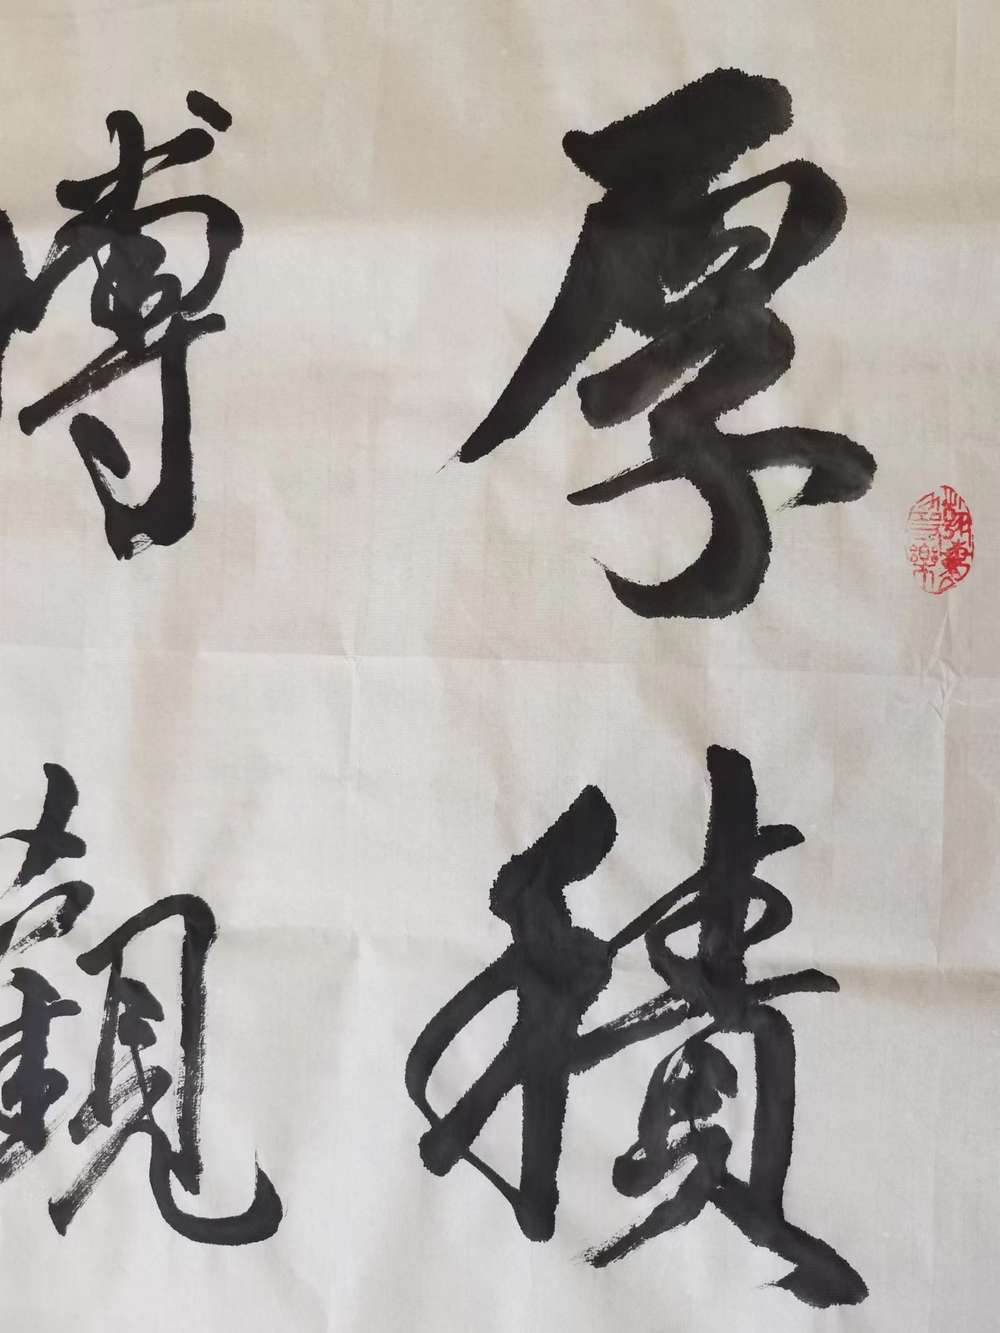 厚積
博觀